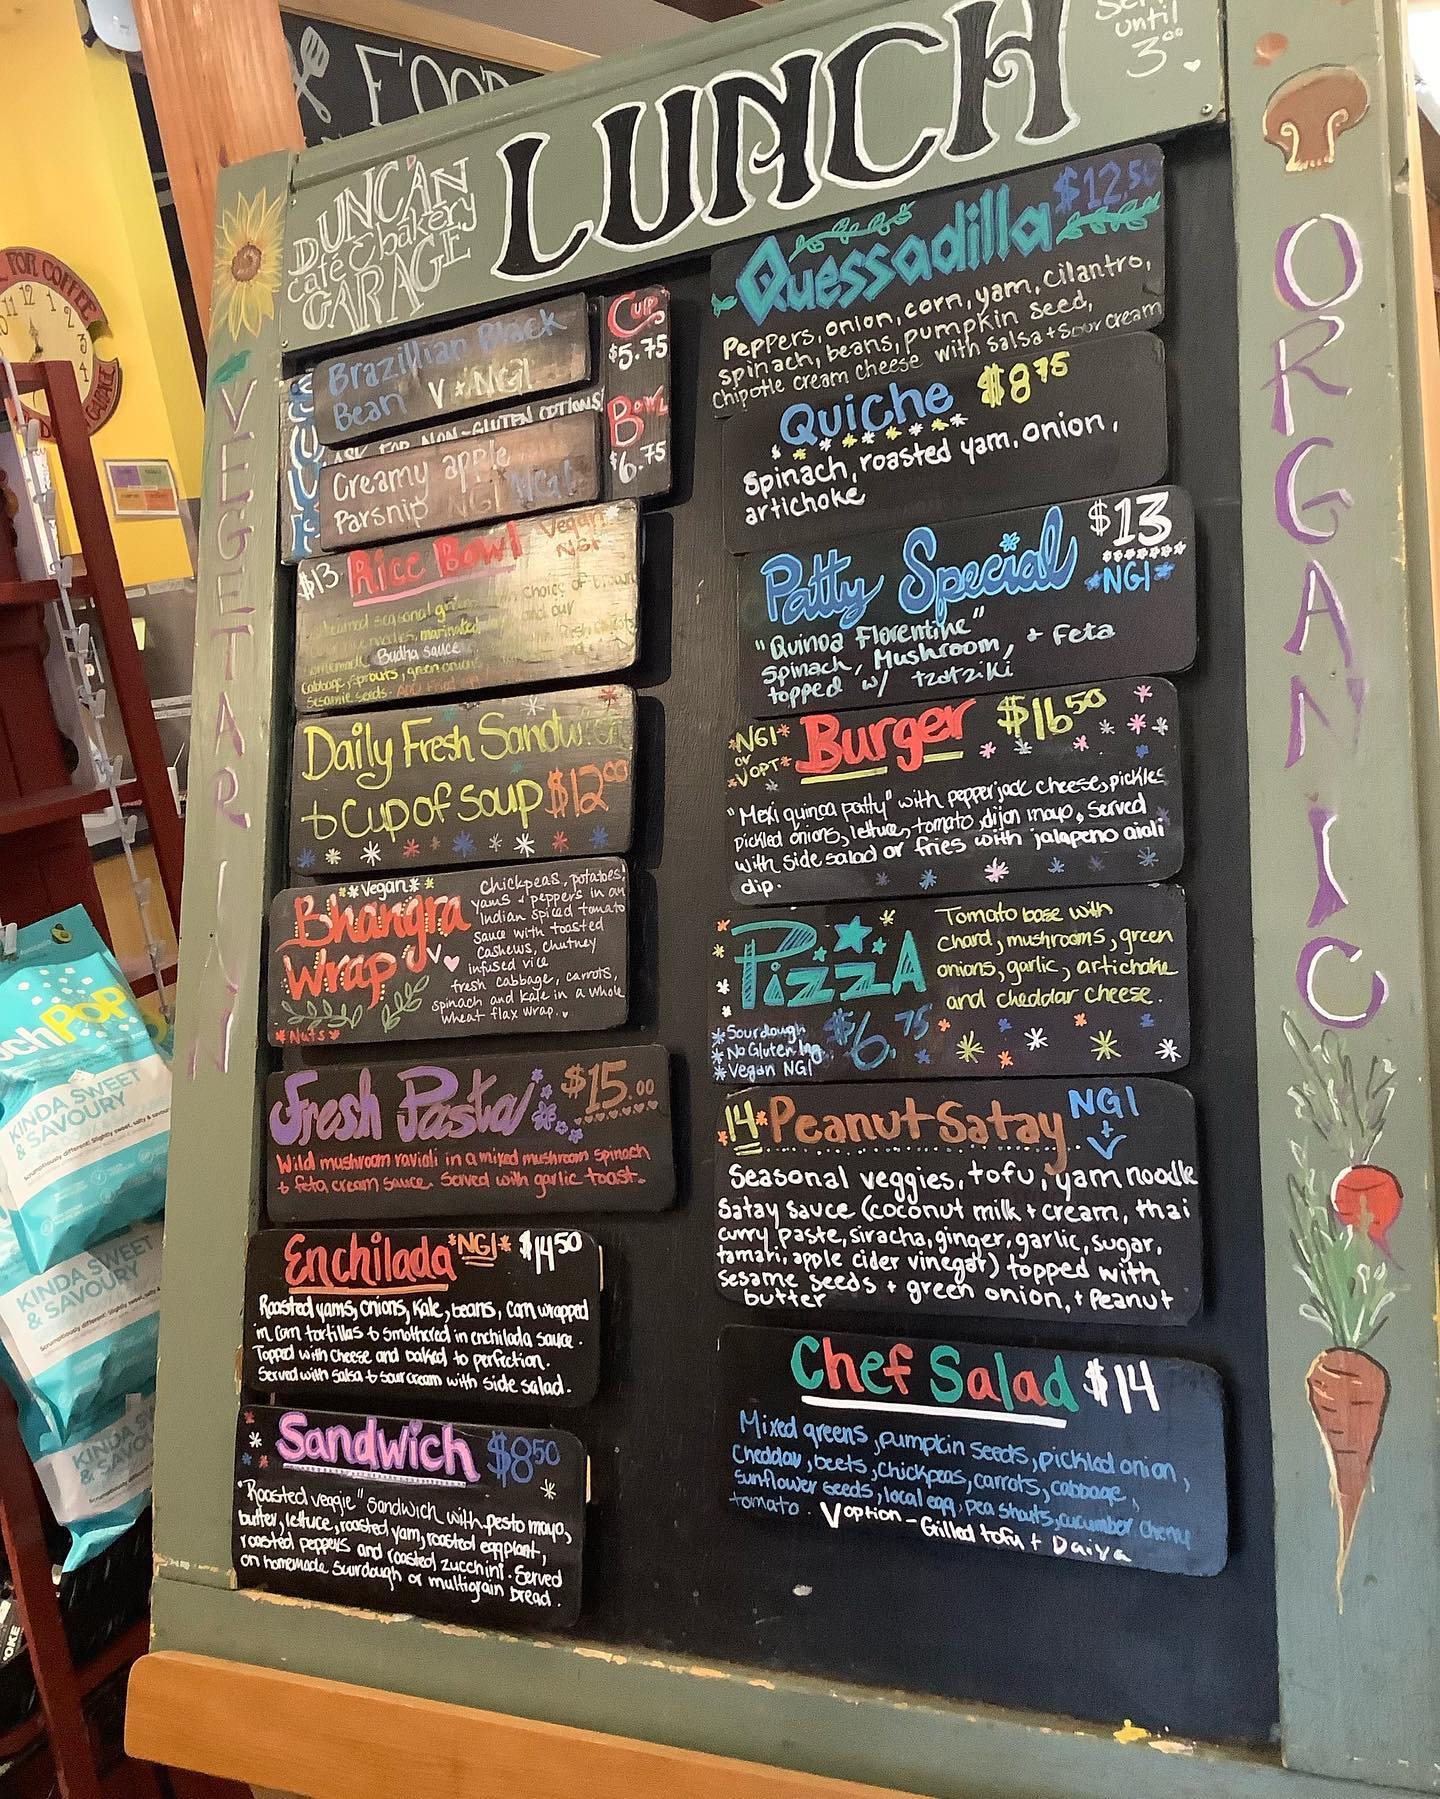 FOOD
Serv
until
3⁰⁰
LUNCH
DUNCAN
café & bakery
GARAGE
FOR COFFEE
11 12 1
2
3
4
VEGETARIAN
ORGANIC
Brazillian Black
Bean V + NGI
ASK FOR NON-GLUTEN OPTIONS
Creamy apple
Parsnip NGI
Cup
$5.75
Bowl
$6.75
$13 Rice Bowl Vegan
NGI
steamed seasonal greens choice of brown
noodles, marinated and our
homemade Budha sauce with fresh
cabbage, sprouts, green onions
sesamie seeds.
Daily Fresh Sandwich
& Cup of Soup $12⁰⁰
*Vegan*
Bhangra
Wrap V
*Nuts*
Chickpeas, potatoes,
yams & peppers in an
Indian spiced tomato
sauce with toasted
cashews, chutney
infused rice
fresh cabbage, carrots,
spinach and kale in a whole
wheat flax wrap.
Fresh Pasta $15.00
Wild mushroom ravioli in a mixed mushroom spinach
& feta cream sauce. Served with garlic toast.
Enchilada *NGI* $14⁵⁰
Roasted yams, onions, kale, beans, corn wrapped
in corn tortillas & smothered in enchilada sauce.
Topped with cheese and baked to perfection.
Served with salsa & sour cream with side salad.
Sandwich $8⁵⁰
"Roasted veggie" sandwich with pesto mayo,
butter, lettuce, roasted yam, roasted eggplant,
roasted peppers and roasted zucchini. Served
on homemade sourdough or multigrain bread.
Quessadilla $12.⁵⁰
Peppers, onion, corn, yam, cilantro,
spinach, beans, pumpkin seed,
chipotle cream cheese with salsa + sour cream
Quiche $8⁷⁵
Spinach, roasted yam, onion,
artichoke
Patty Special $13
*NGI*
"Quinoa Florentine"
Spinach, Mushroom, + Feta
topped w/ tzatziki
*NGI*
or
*V OPT*
Burger $16⁵⁰
"Mexi quinoa patty" with pepperjack cheese, pickles
pickled onions, lettuce, tomato, dijon mayo, served
with side salad or fries with jalapeno aioli
dip.
Pizza
$6.⁷⁵
Tomato base with
chard, mushrooms, green
onions, garlic, artichoke
and cheddar cheese.
*Sourdough
*No Gluten Ing
*Vegan NGI
14 Peanut Satay NGI
+
V
Seasonal veggies, tofu, yam noodle
Satay sauce (coconut milk + cream, thai
curry paste, siracha, ginger, garlic, sugar,
tamari, apple cider vinegar) topped with
sesame seeds + green onion, + Peanut
butter
Chef Salad $14
Mixed greens, pumpkin seeds, pickled onion,
Cheddar, beets, chickpeas, carrots, cabbage,
sunflower seeds, local egg, pea shoots, cucumber cherry
tomato. V option - Grilled tofu + Daiya
chPOP
KINDA SWEET
& SAVOURY
KINDA SWEET
& SAVOURY
KINDA S
& SA